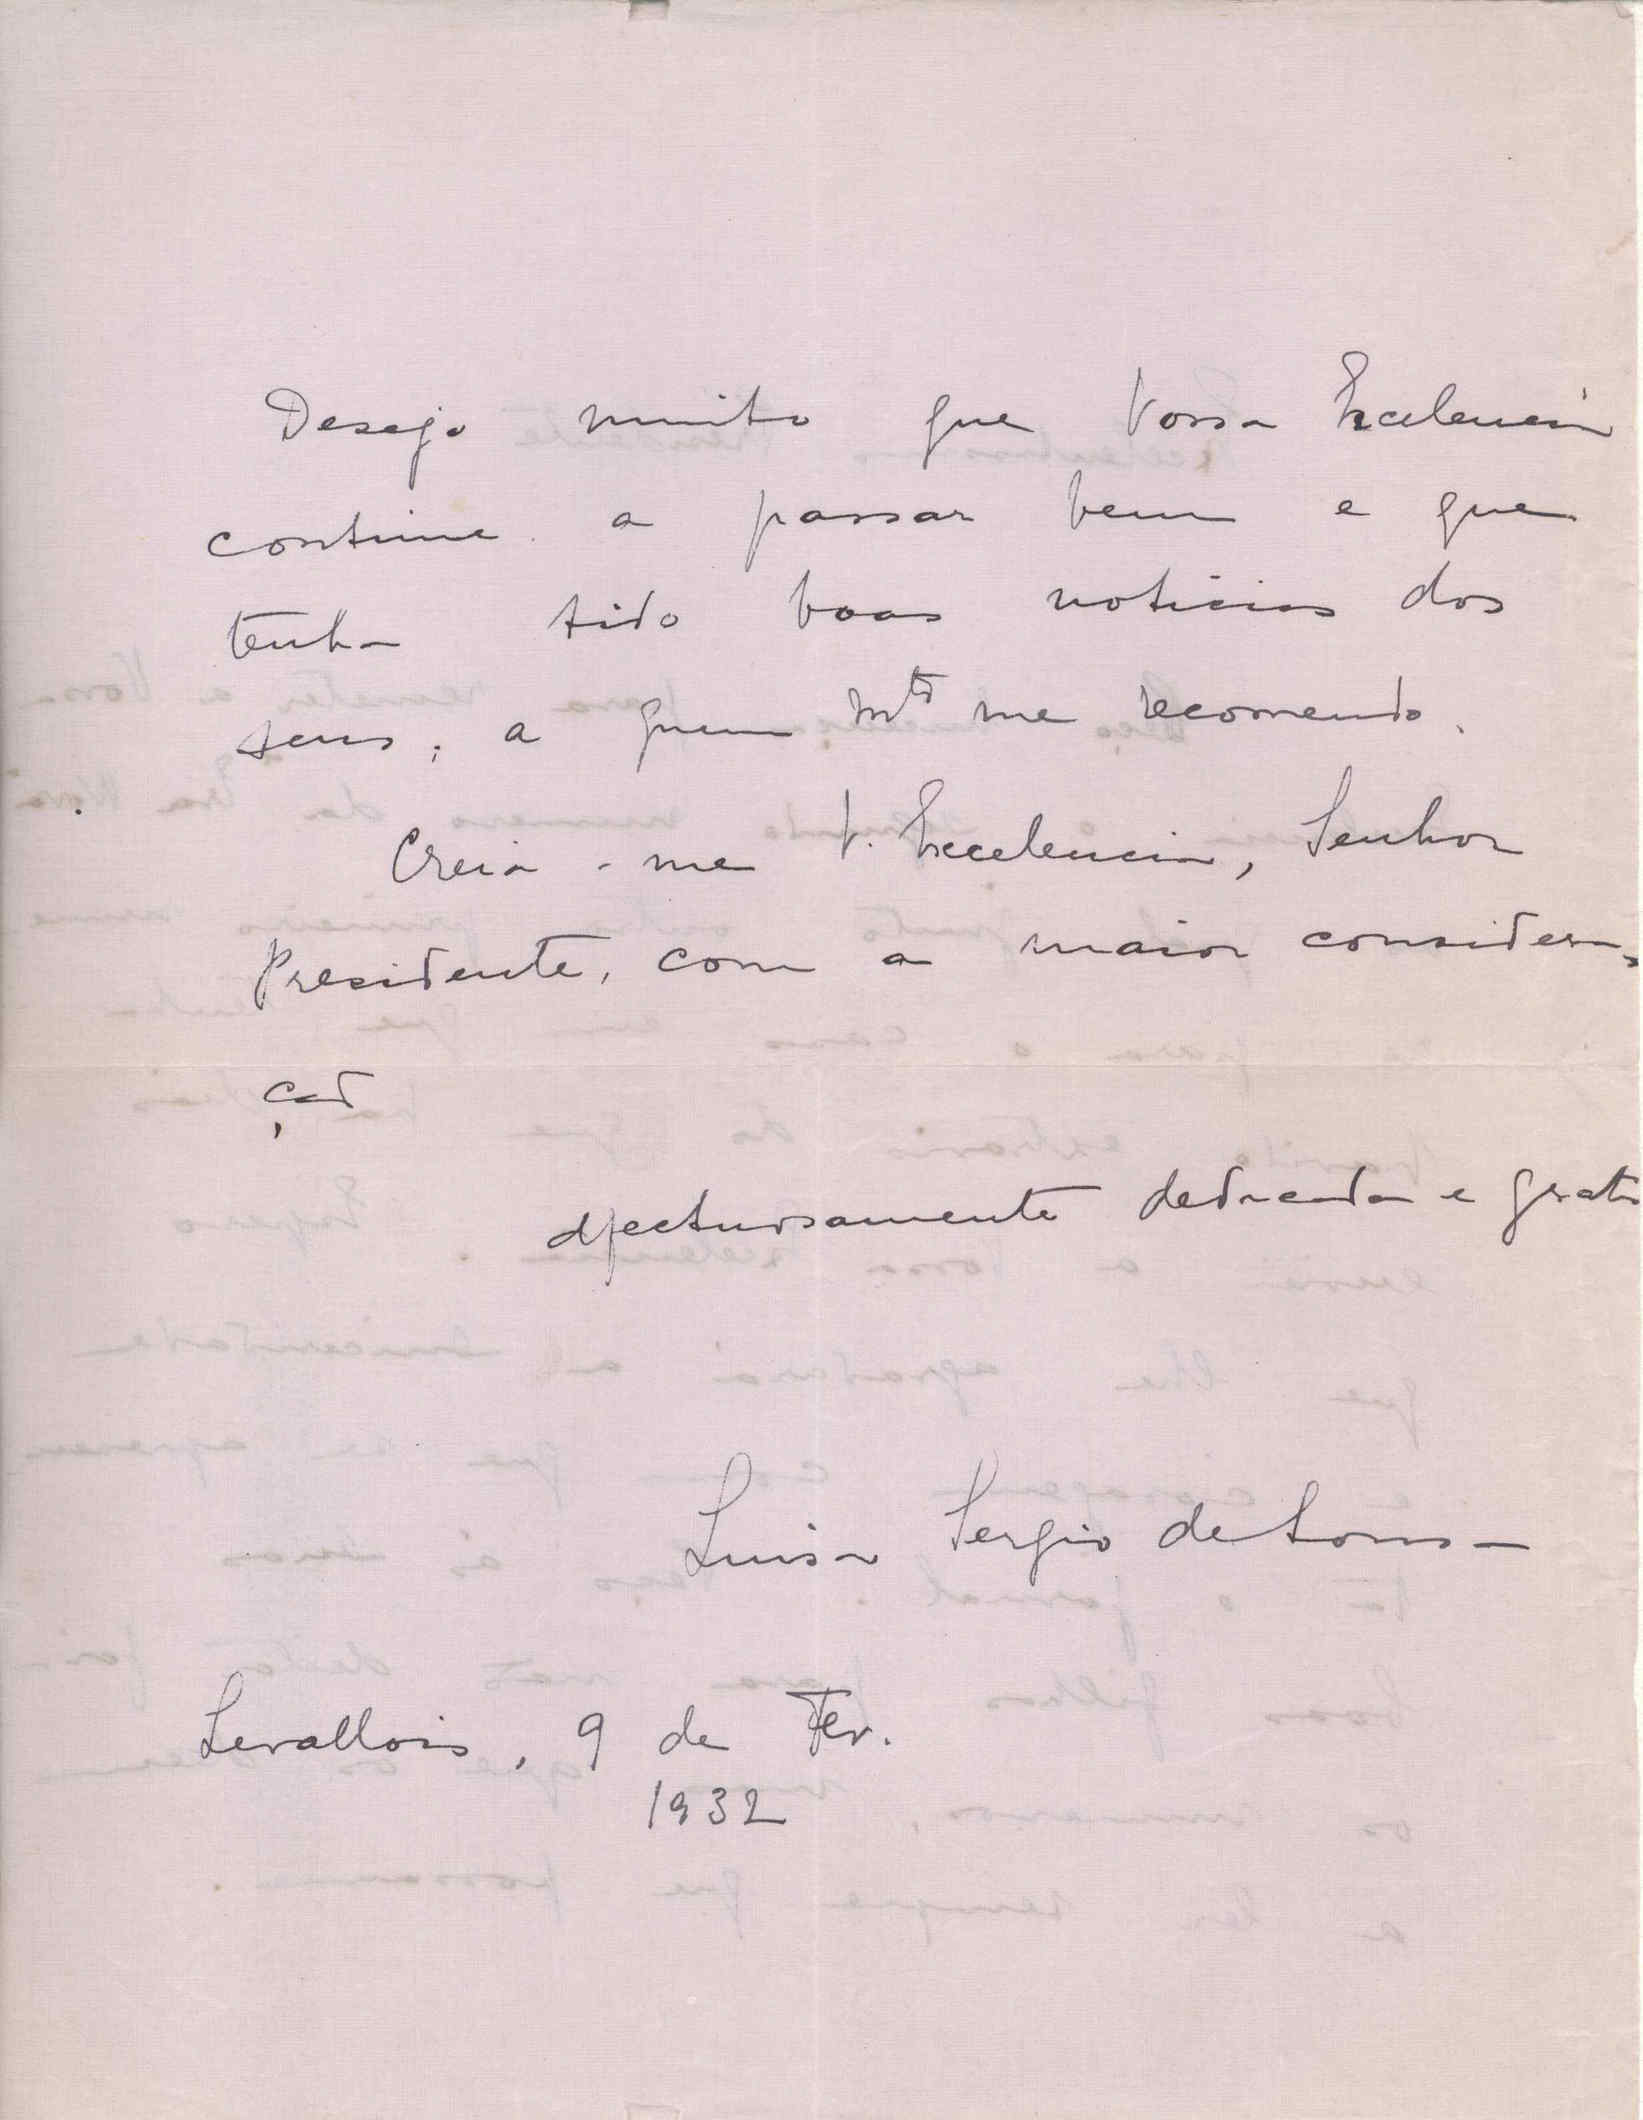 Desejo muito que Vossa Excelencia
continue a passar bem e que
tenha tido boas noticias dos
seus, a quem mto me recomendo.
Creia-me V. Excelencia, Senhor
Presidente, com a maior considera-
ção
afectuosamente dedicada e grata
Luisa Sergio de Sousa
Levallois, 9 de Fev.
1932